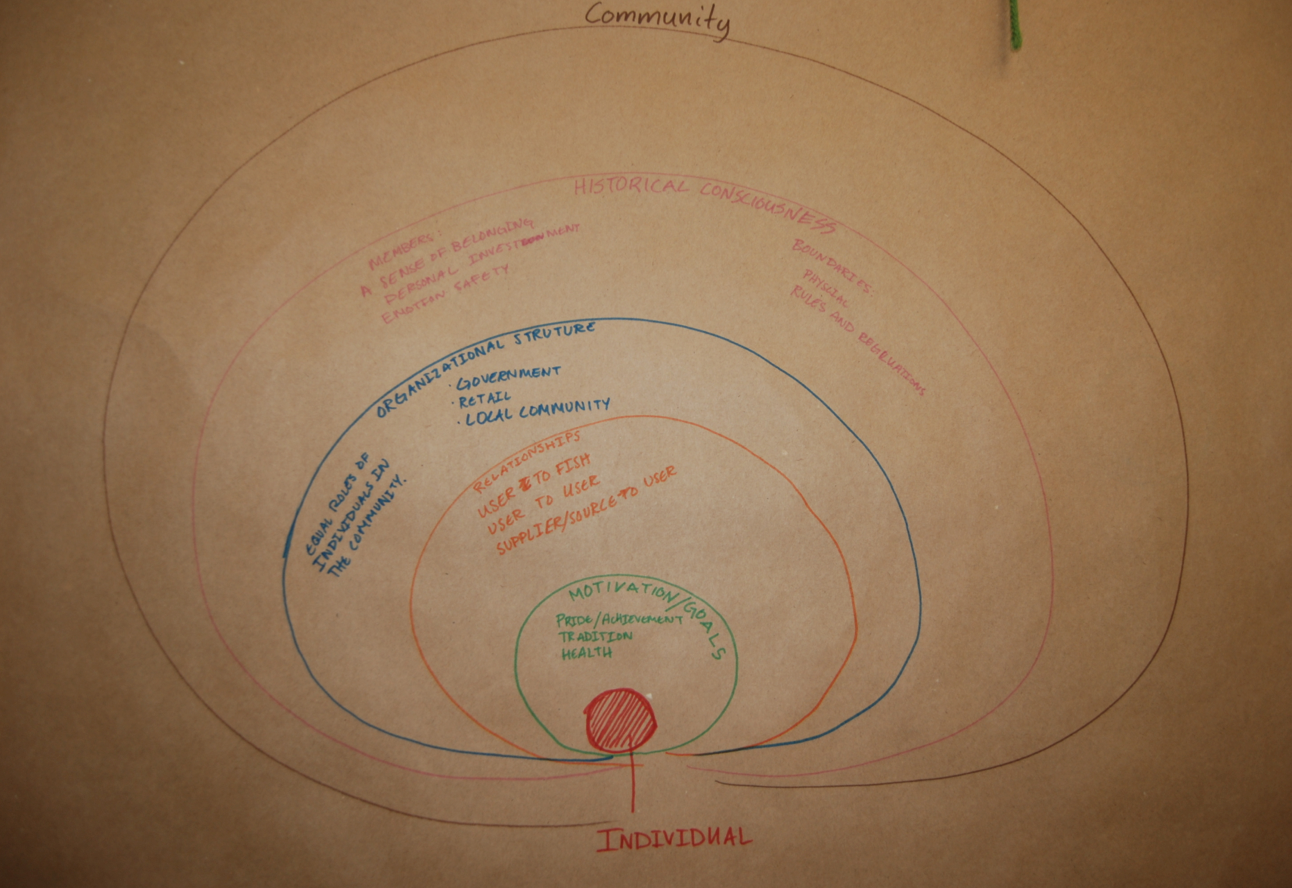 Community
HISTORICAL CONSCIOUSNESS
MEMBERS:
A SENSE OF BELONGING
PERSONAL INVESTMENT
EMOTION SAFETY
BOUNDARIES:
PHYSICAL
RULES AND REGRUATIONS
ORGANIZATIONAL STRUTURE
· GOVERNMENT
· RETAIL
· LOCAL COMMUNITY
EQUAL ROLES OF
INDIVIDUALS IN
THE COMMUNITY.
RELATIONSHIPS
USER TO FISH
USER TO USER
SUPPLIER/SOURCE TO USER
MOTIVATION/GOALS
PRIDE/ACHIEVEMENT
TRADITION
HEALTH
INDIVIDUAL